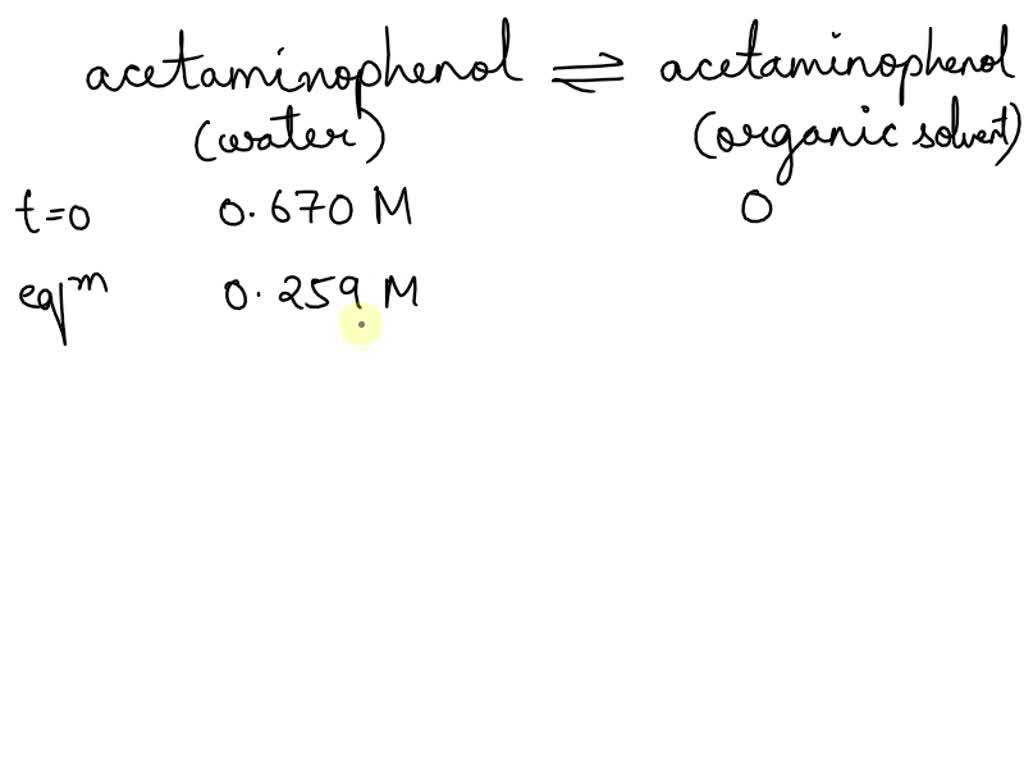 acetaminophenol ⇌ acetaminophenol
(water) (organic solvent)
t=0 0.670 M 0
eqᵐ 0.259 M